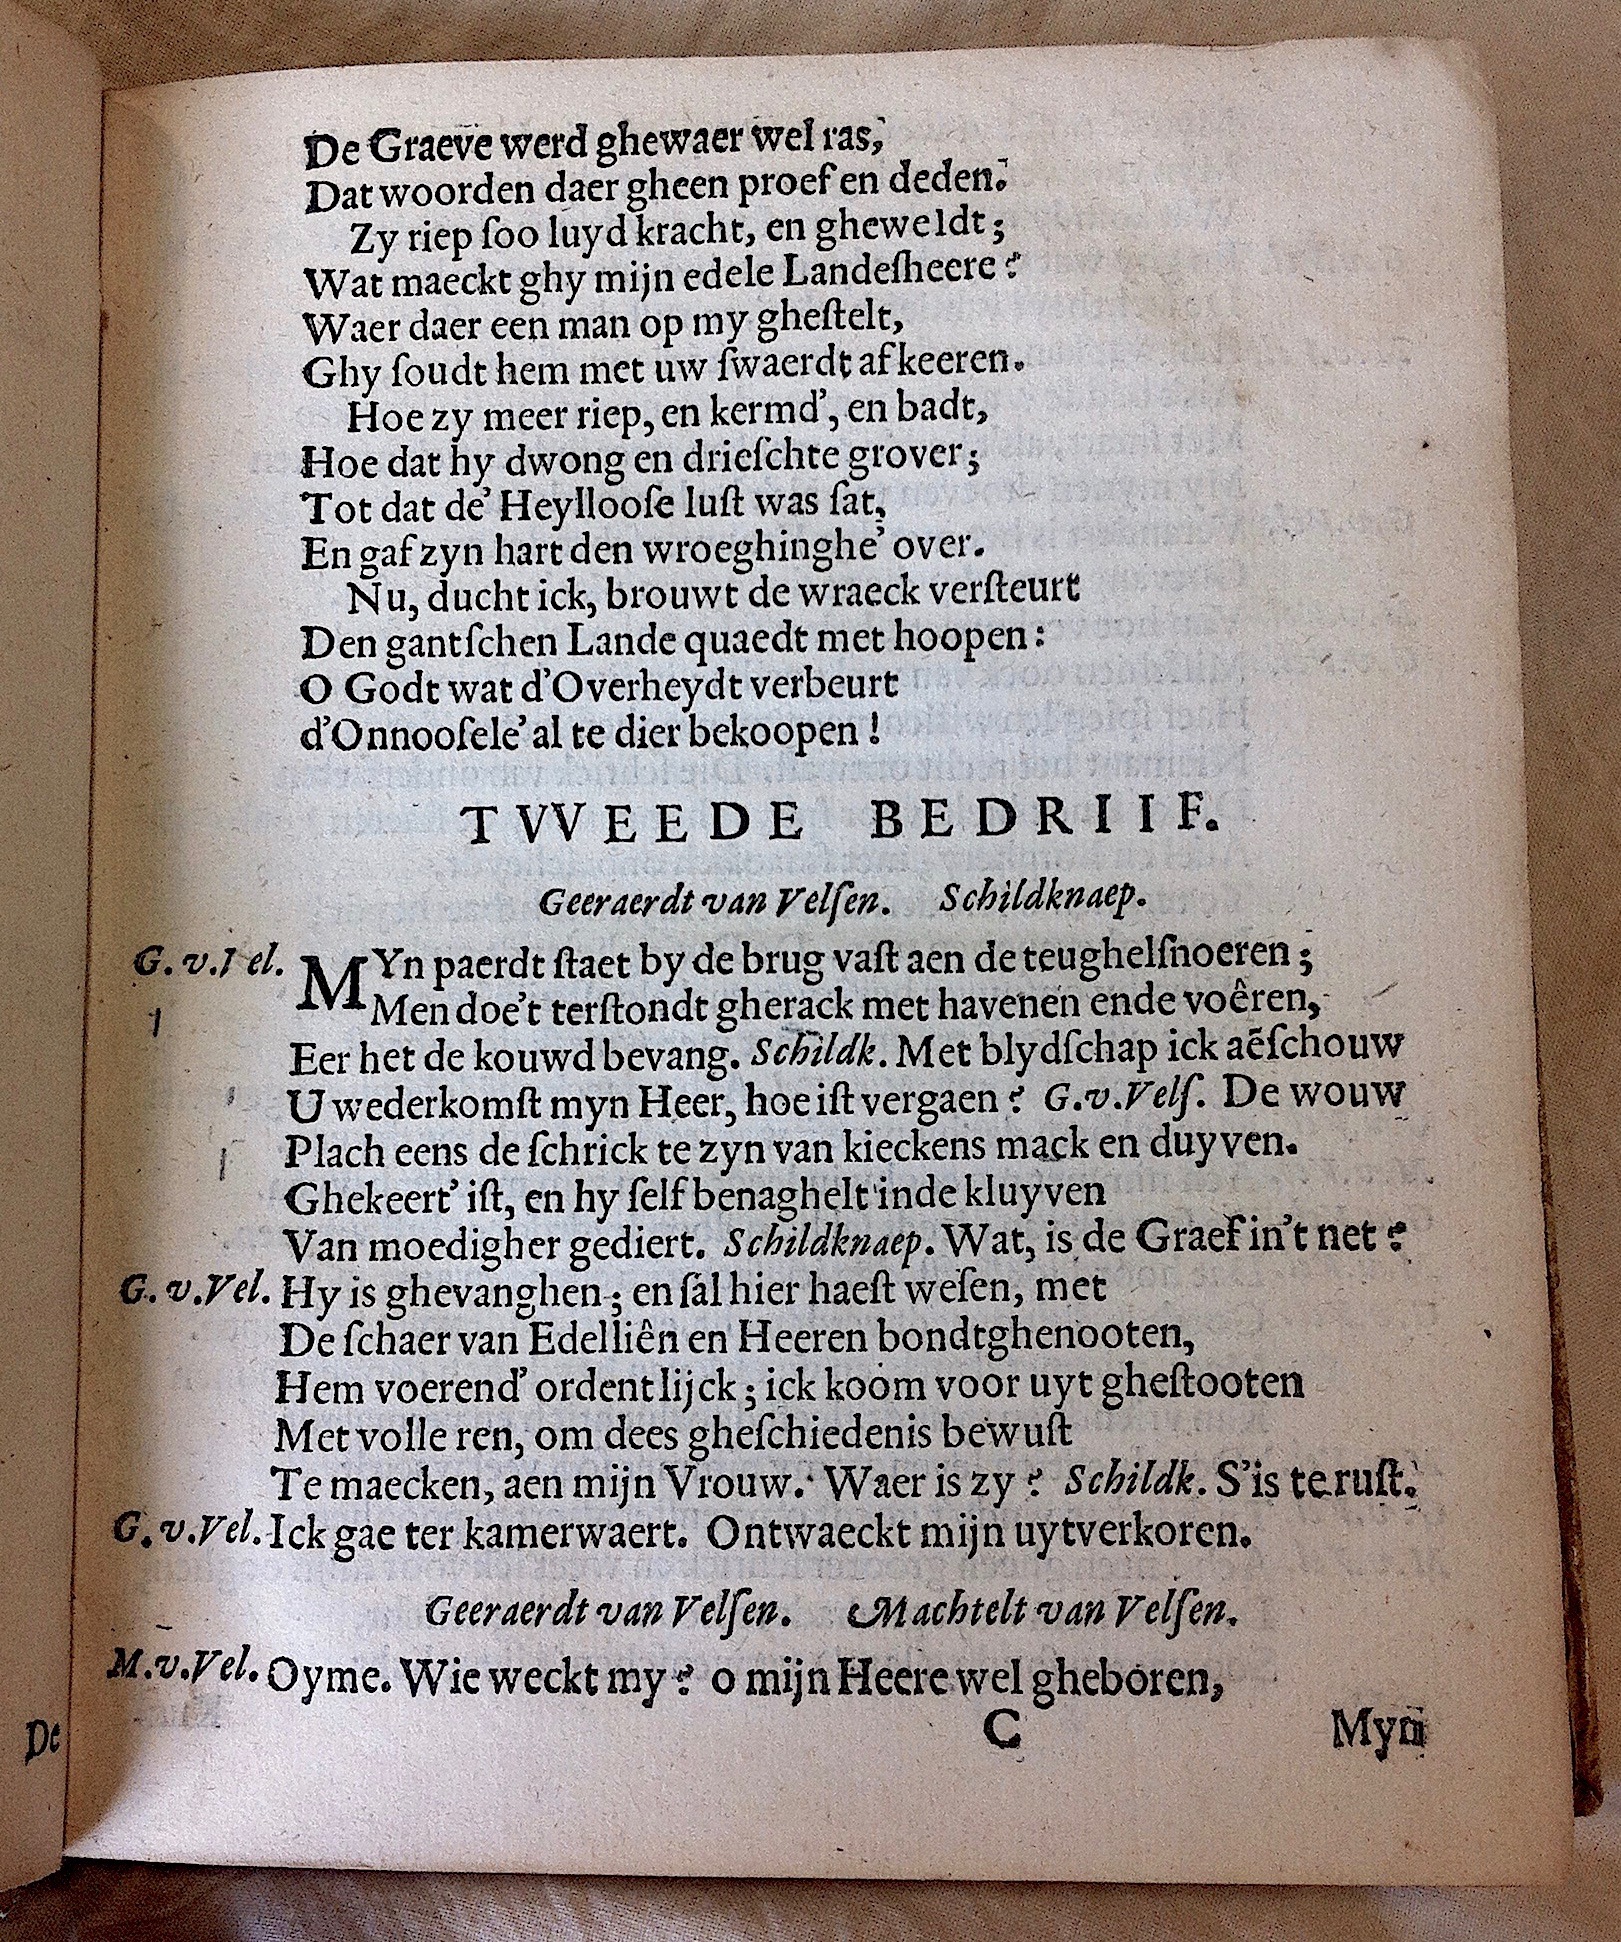 De Graeve werd ghewaer wel ras,
Dat woorden daer gheen proef en deden.
Zy riep ſoo luyd kracht, en gheweldt;
Wat maeckt ghy mijn edele Landeſheere?
Waer daer een man op my gheſtelt,
Ghy ſoudt hem met uw ſwaerdt af keeren.
Hoe zy meer riep, en kermd’, en badt,
Hoe dat hy dwong en drieſchte grover;
Tot dat de’ Heyllooſe luſt was ſat,
En gaf zyn hart den wroeghinghe’ over.
Nu, ducht ick, brouwt de wraeck verſteurt
Den gantſchen Lande quaedt met hoopen:
O Godt wat d’Overheydt verbeurt
d’Onnooſele’ al te dier bekoopen!
TVVEEDE BEDRIIF.
Geeraerdt van Velſen. Schildknaep.
G. v. Vel. MYn paerdt ſtaet by de brug vaſt aen de teughelſnoeren;
Men doe’t terſtondt gherack met havenen ende voêren,
Eer het de kouwd bevang. Schildk. Met blydſchap ick aẽſchouw
U wederkomſt myn Heer, hoe iſt vergaen? G.v.Velſ. De wouw
Plach eens de ſchrick te zyn van kieckens mack en duyven.
Ghekeert’ iſt, en hy ſelf benaghelt inde kluyven
Van moedigher gediert. Schildknaep. Wat, is de Graef in’t net?
G. v.Vel. Hy is ghevanghen; en ſal hier haeſt weſen, met
De ſchaer van Edelliên en Heeren bondtghenooten,
Hem voerend’ ordentlijck; ick koom voor uyt gheſtooten
Met volle ren, om dees gheſchiedenis bewuſt
Te maecken, aen mijn Vrouw. Waer is zy? Schildk. S’is te ruſt.
G. v.Vel. Ick gae ter kamerwaert. Ontwaeckt mijn uytverkoren.
Geeraerdt van Velſen. Machtelt van Velſen.
M.v.Vel. Oyme. Wie weckt my? o mijn Heere wel gheboren,
C Myn
De